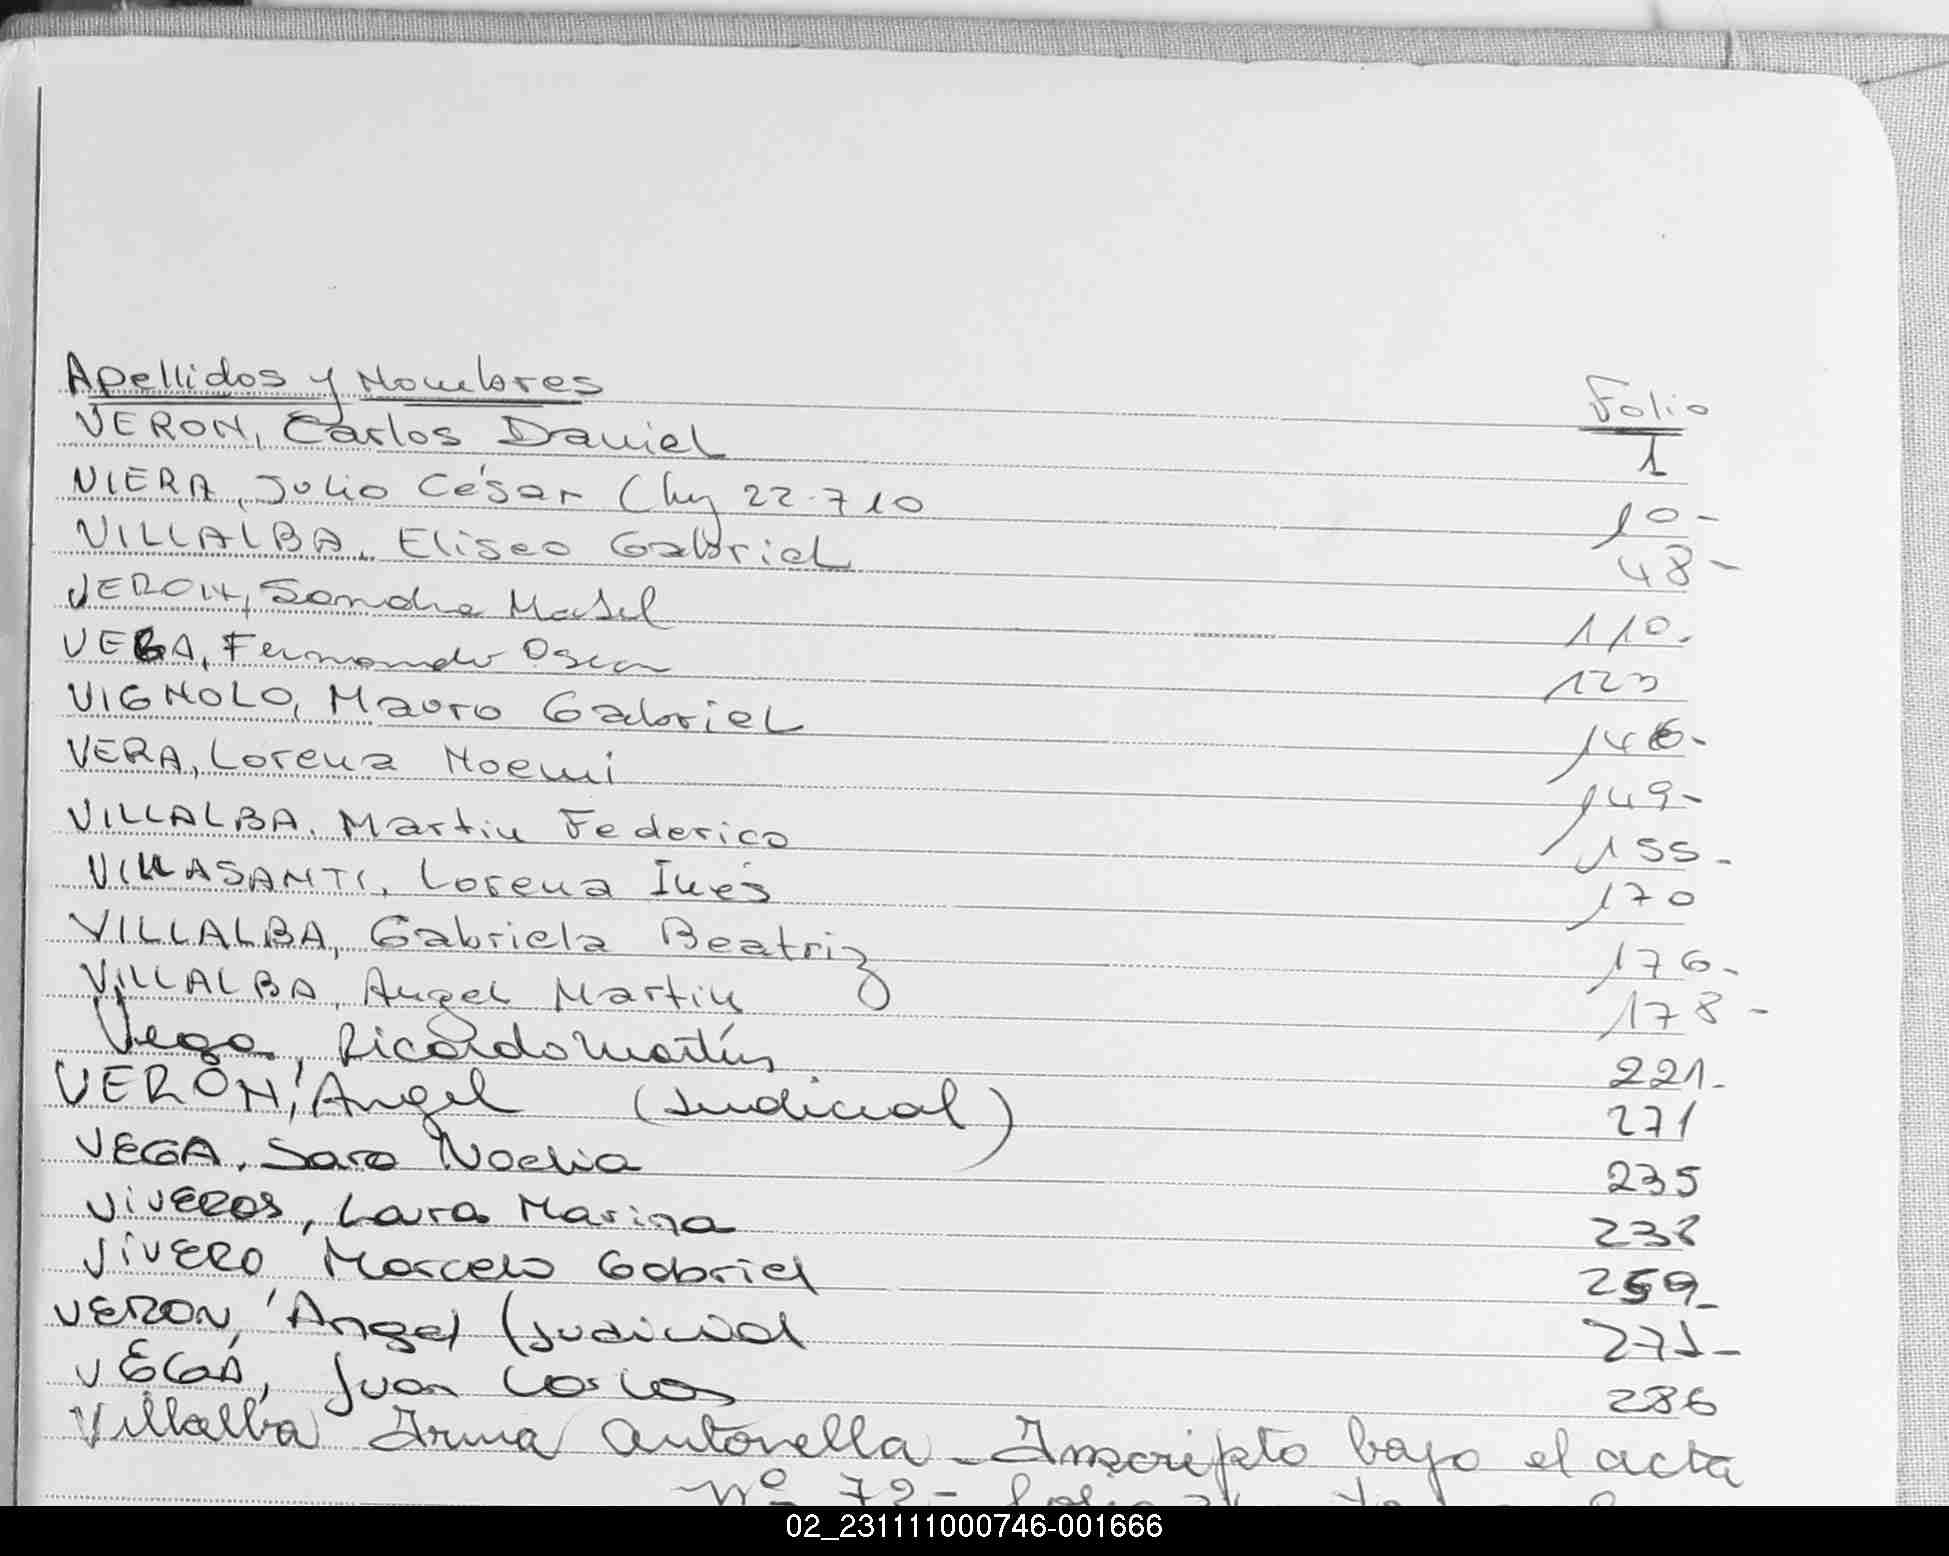 Apellidos y Nombres Folio
VERON, Carlos Daniel 1
VIERA, Julio César (Ley 22.710 10-
VILLALBA, Eliseo Gabriel 48-
VERON, Sandra Mabel 110.
VEGA, Fernando Oscar 123
VIGNOLO, Mauro Gabriel 146-
VERA, Lorena Noemi 149-
VILLALBA. Martin Federico 155-
VILLASANTI, Lorena Inés 170
VILLALBA, Gabriela Beatriz 176-
VILLALBA, Angel Martin 178-
Vega, Ricardo Martín 221-
VERÓN, Angel (Judicial) 271
VEGA, Sara Noelia 235
ViVEROS, Lara Marina 238
ViVERO Marcelo Gabriel 259-
VERON, Angel (Judicial 271-
VEGA, Juan Carlos 286
Villalba Irma Antonella - Inscripto bajo el acta
Nº 72-
02_231111000746-001666